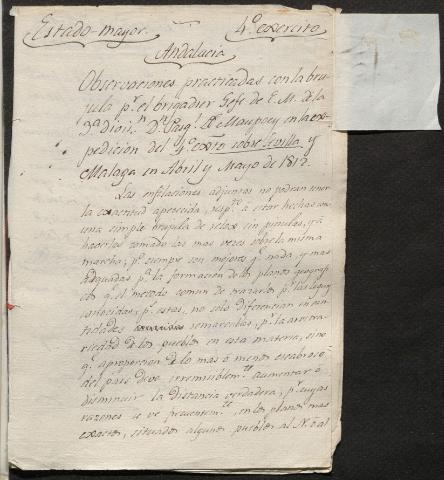 Estado-mayor. 4.º exercito
Andalucia
Observaciones practicadas con la bru-
jula p.r el brigadier Gefe de E. M. de la
2.a divis.n D.n Joaq.n M.a Maupoey en la ex-
pedicion del 4.º ex.to sobre Sevilla y
Malaga en Abril y Mayo de 1812.
Las enfilaciones adjuntas no podran tener
la exactitud apetecida, resp.to à estar hechas con
una simple brujula de relox sin pinulas, y à
haverlas tomado las mas veces sobre la misma
marcha; p.o siempre son mejores q.e nada, y mas
adequadas p.a la formacion de los planos geografi-
cos q.e el metodo comun de trazarlos p.r las leguas
conocidas, p.s estas, no solo diferencian en can-
tidades semarcables, p.r la arbitra-
riedad de los pueblos en esta materia, sino
q.e à proporcion de lo mas ò menos escabroso
del pais deve irremisiblem.te aumentar ò
disminuir la distancia verdadera, p.r cuyas
razones se ve frecuentem.te en los planos mas
exactos, situados algunos pueblos al N. ò al